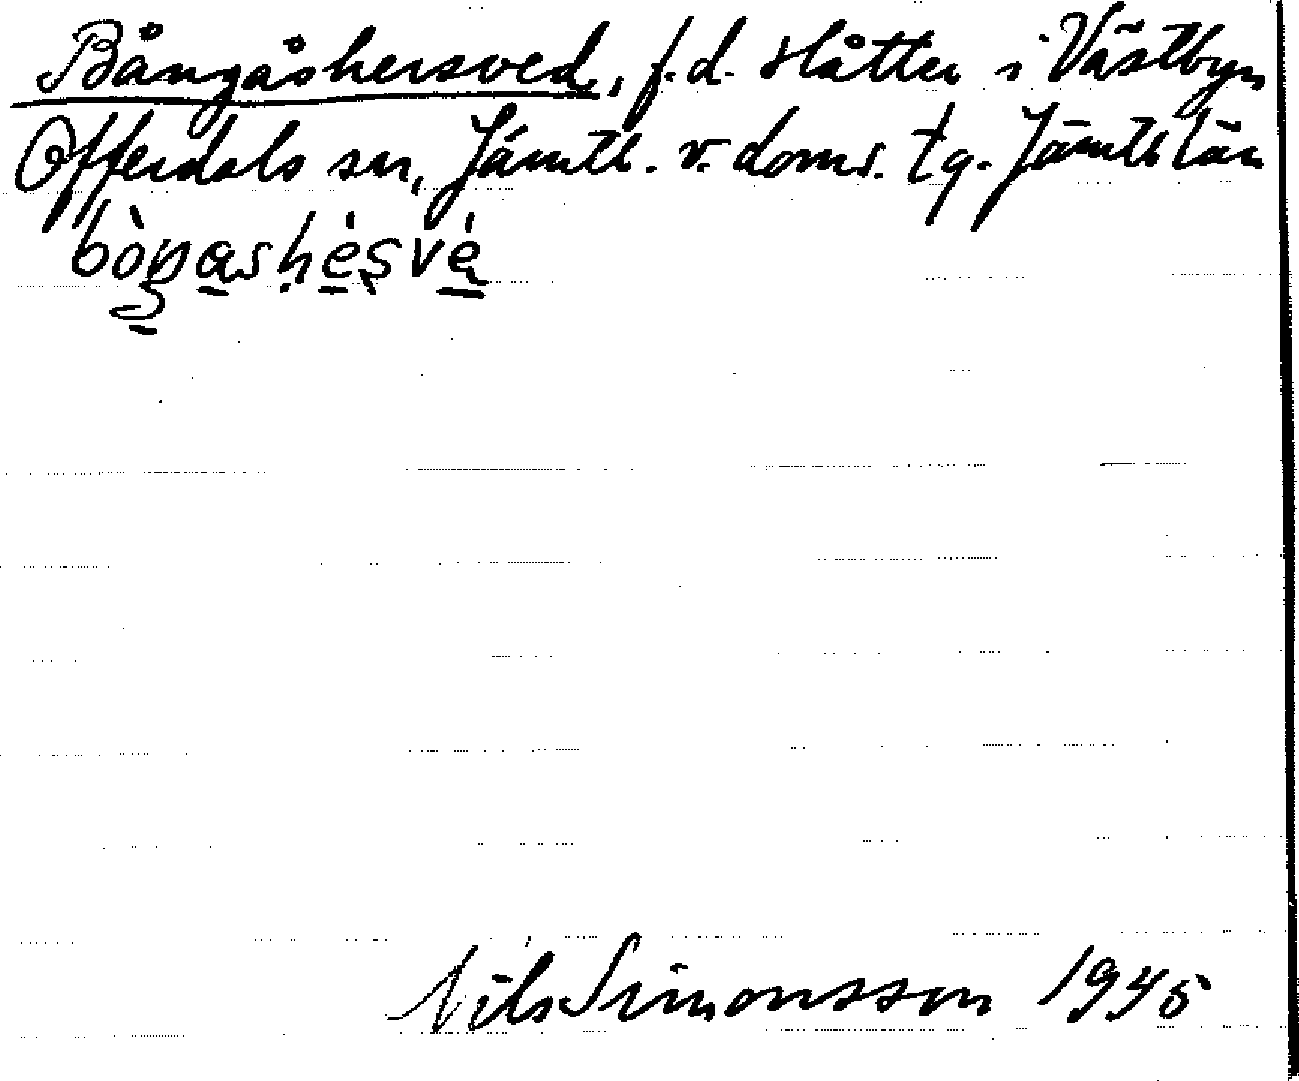 Bångåshersved, f.d. slåtter i Västbyn
Offerdals sn, Jämtl. v. doms. tg. Jämtls län
bòŋashèsvé
Nils Simonsson 1945